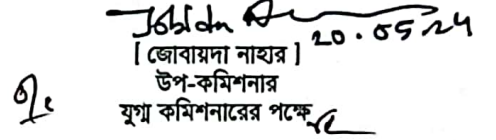 20.05.24
[ জোবায়দা নাহার ]
উপ-কমিশনার
যুগ্ম কমিশনারের পক্ষে